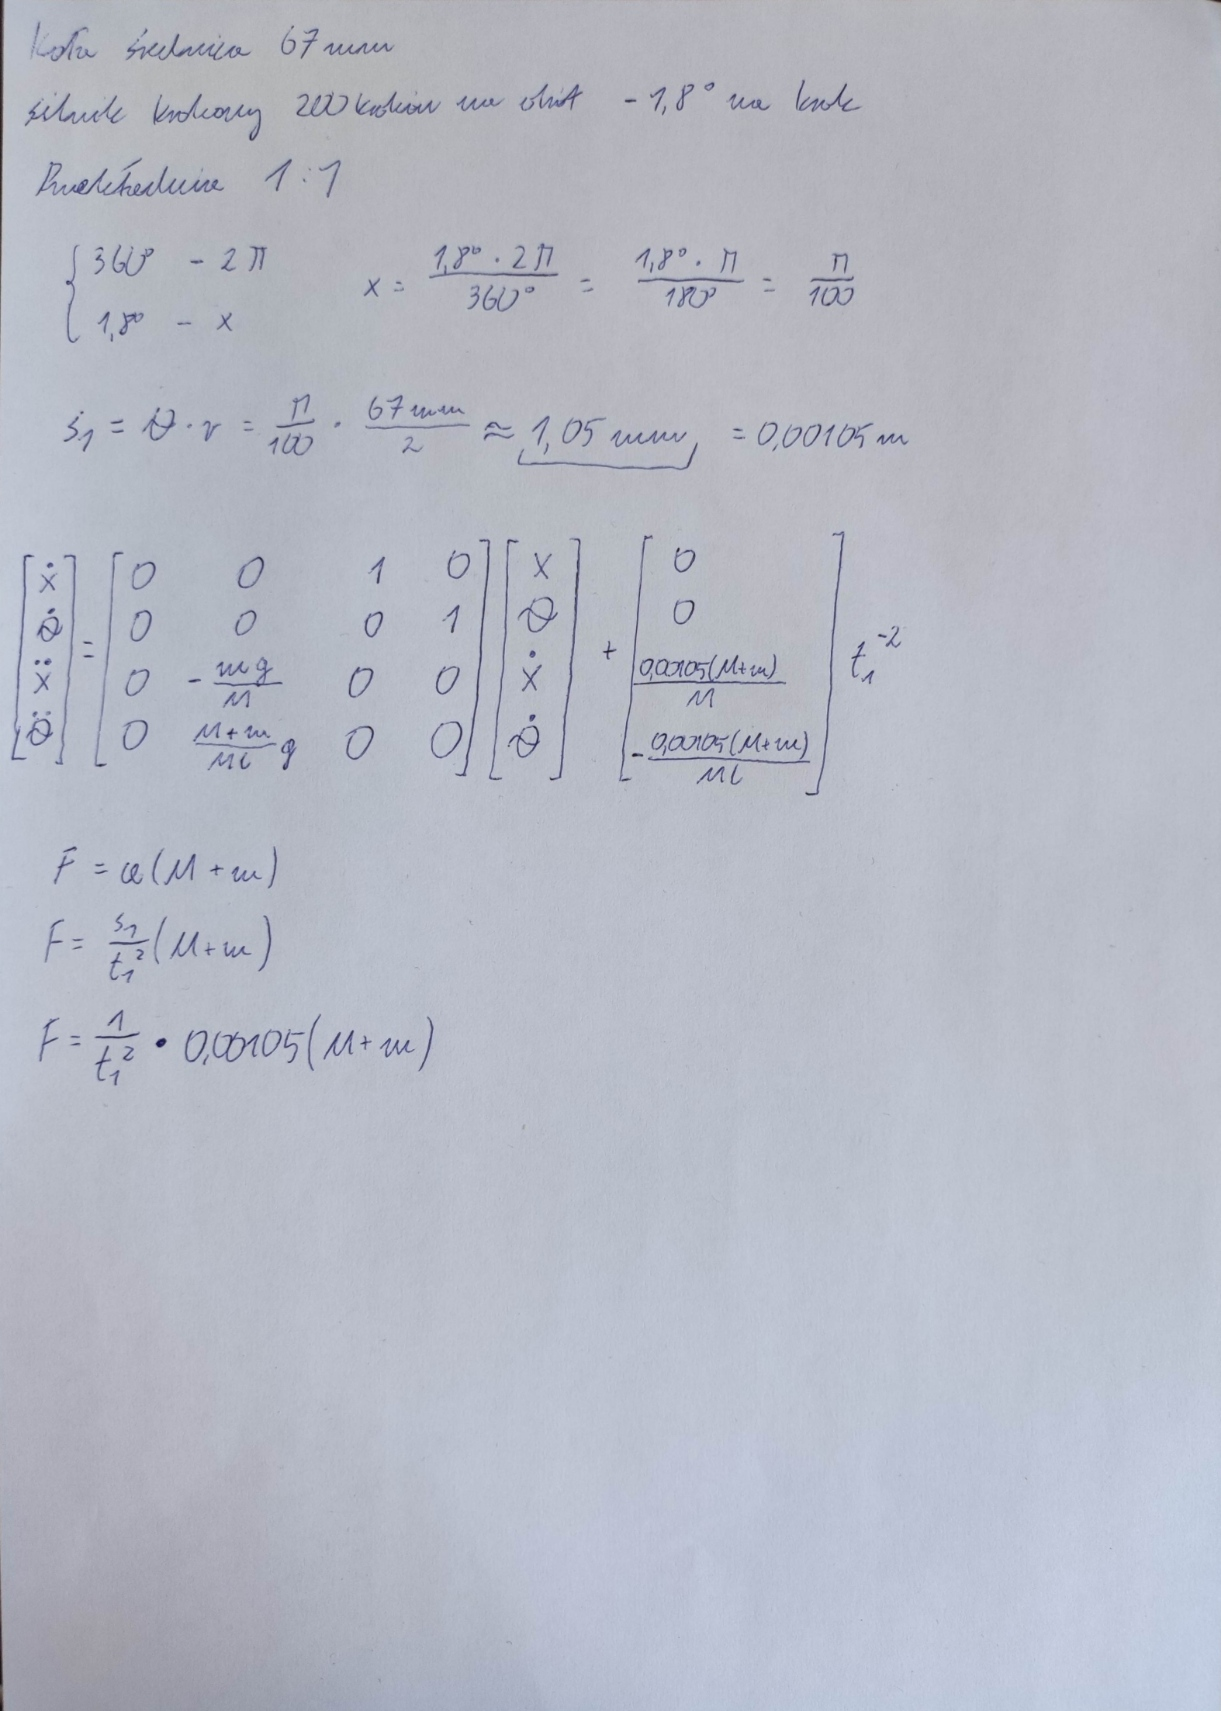 Koła średnica 67 mm
silnik krokowy 200 kroków na obrót - 1,8° na krok
Przekładnia 1:1
{ 360° - 2π
1,8° - x
x = (1,8° · 2π)/360° = (1,8° · π)/180° = π/100
s₁ = θ · r = π/100 · 67mm/2 ≈ 1,05 mm = 0,00105 m
[ẋ] = [0 0 1 0] [x] + [0]
[θ̇] [0 0 0 1] [θ] [0]
[ẍ] [0 -mg/M 0 0] [ẋ] [0,00105(M+m)/M] t₁⁻²
[θ̈] [0 (M+m)/(Ml) g 0 0] [θ̇] [-0,00105(M+m)/(Ml)]
F = a(M+m)
F = s₁/t₁² (M+m)
F = 1/t₁² · 0,00105(M+m)